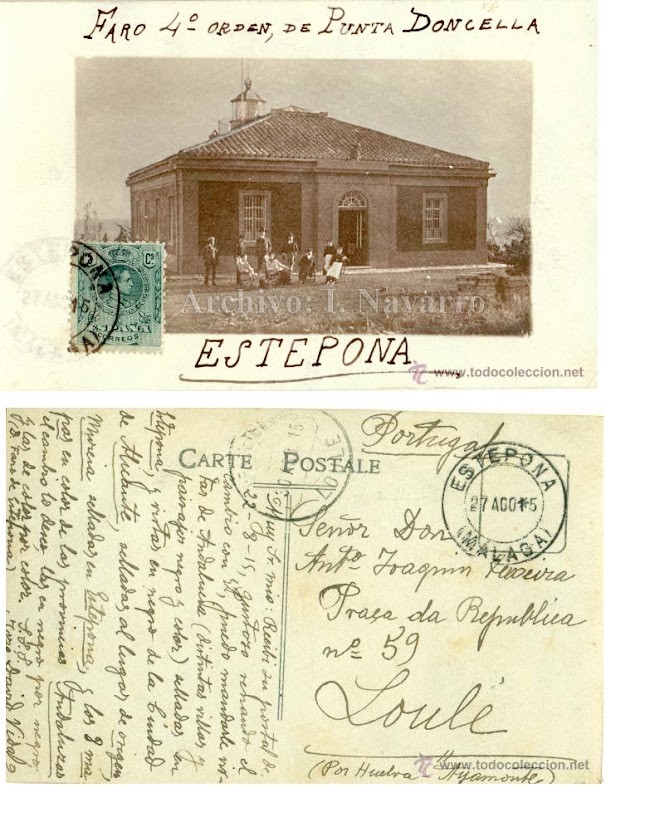 FARO 4º ORDEN, DE PUNTA DONCELLA
ESTEPONA
27 AGO 15
Cs
CORREOS
Archivo: I. Navarro
ESTEPONA
www.todocoleccion.net
CARTE POSTALE
Portugal
ESTEPONA
27 AGO 15
(MALAGA)
LOULÉ
Señor Don
Antº Joaquin Teixeira
Praça da Republica
nº 59
Loulé
(Por Huelva Ayamonte)
www.todocoleccion.net
Muy Sr. mio: Recibí su postal de
22-8-15, gustoso
cambio con Vd, puedo mandarle vis-
tas de Andalucia (distintas villas y
paisajes negro y color) selladas en
Estepona, y vistas en negro de la Ciudad
de Alicante, selladas al lugar de origen,
Morena selladas en Estepona, y los 8 ma
pas en color de las provincias Andaluzas
el cambio lo deseo las en negro por negro
y las de color por color. S.S.S.
David Vidal